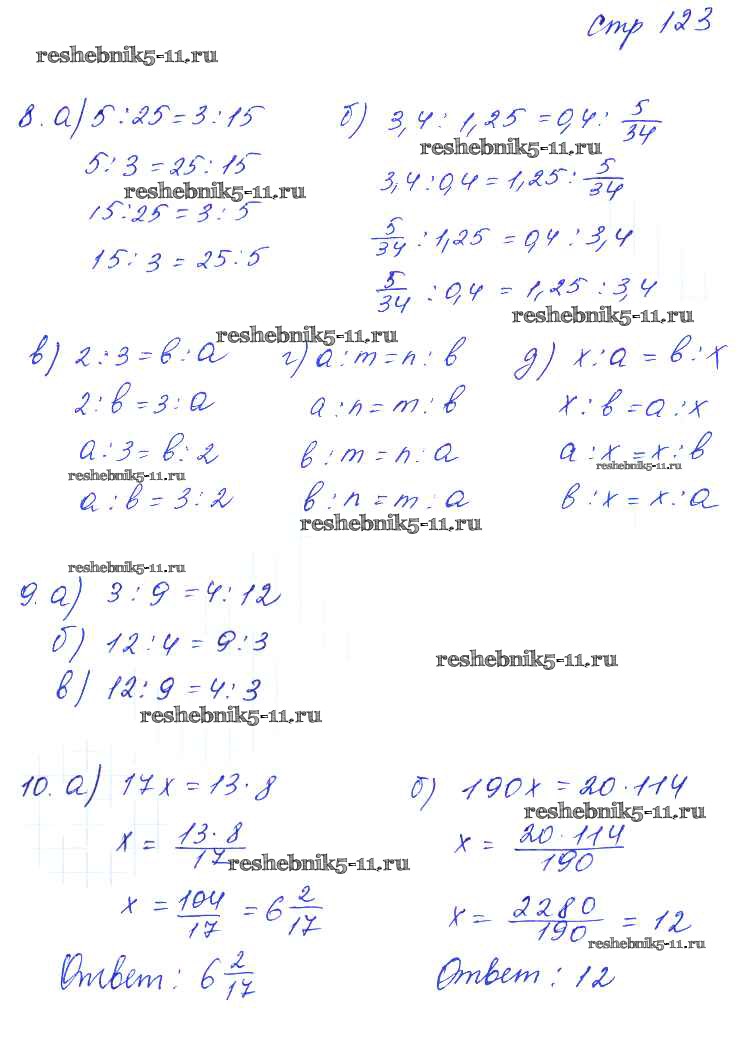 стр 123
reshebnik5-11.ru
8. а) 5:25=3:15
5:3=25:15
reshebnik5-11.ru
15:25=3:5
15:3=25:5
б) 3,4:1,25=0,4:5/34
reshebnik5-11.ru
3,4:0,4=1,25:5/34
5/34:1,25=0,4:3,4
5/34:0,4=1,25:3,4
reshebnik5-11.ru
reshebnik5-11.ru
в) 2:3=в:а
2:в=3:а
а:3=в:2
reshebnik5-11.ru
а:в=3:2
г) а:m=n:в
а:n=m:в
в:m=n:а
в:n=m:а
reshebnik5-11.ru
д) х:а=в:х
х:в=а:х
а:х=х:в
reshebnik5-11.ru
в:х=х:а
reshebnik5-11.ru
9. а) 3:9=4:12
б) 12:4=9:3
в) 12:9=4:3
reshebnik5-11.ru
reshebnik5-11.ru
10. а) 17х=13·8
х=13·8/17
reshebnik5-11.ru
х=104/17=6 2/17
Ответ: 6 2/17
б) 190х=20·114
reshebnik5-11.ru
х=20·114/190
х=2280/190=12
reshebnik5-11.ru
Ответ: 12